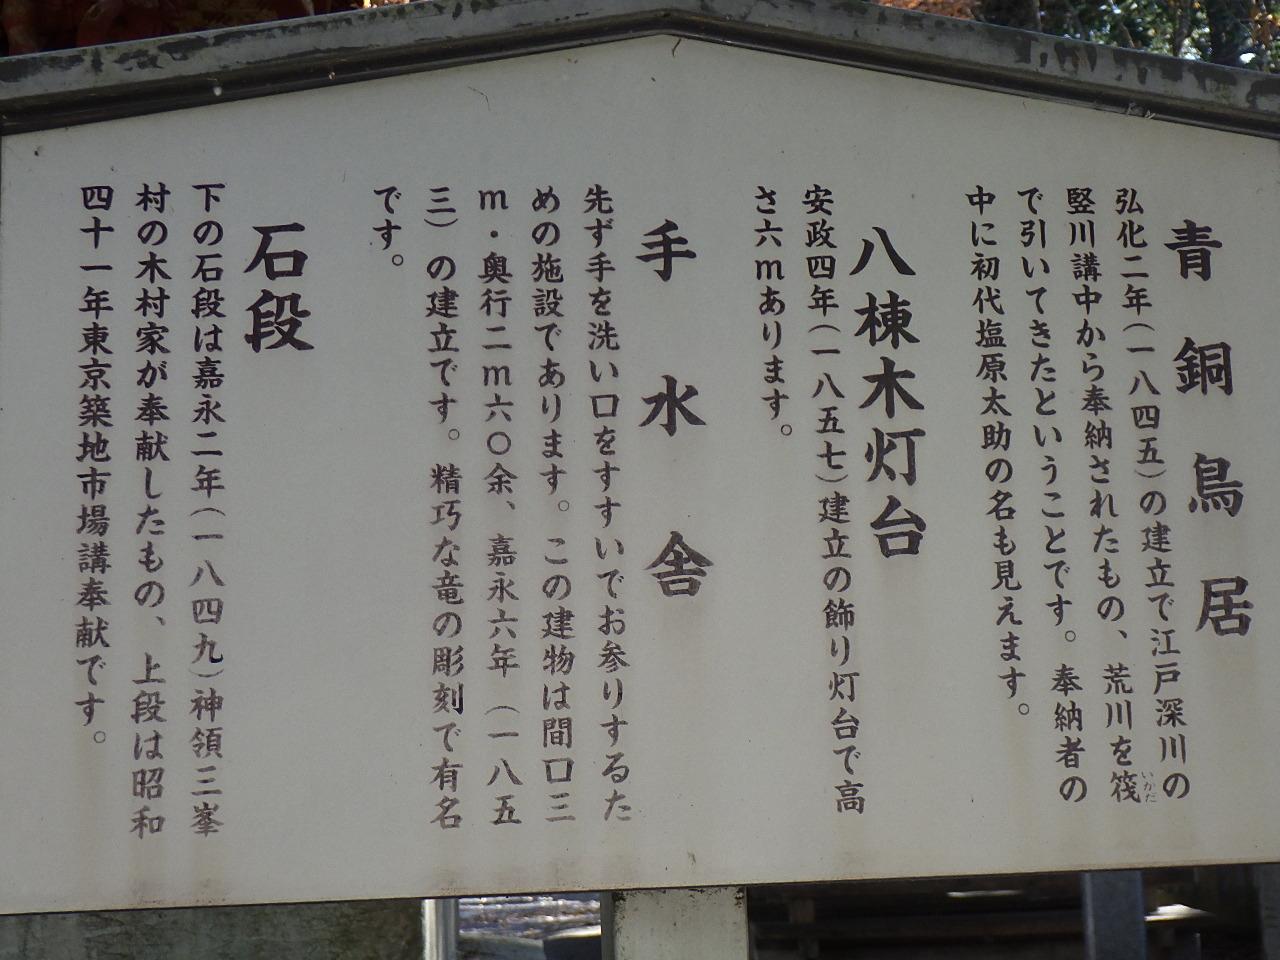 青銅鳥居
弘化二年(一八四五)の建立で江戸深川の
竪川講中から奉納されたもの、荒川を筏
いかだ
で引いてきたということです。奉納者の
中に初代塩原太助の名も見えます。
八棟木灯台
安政四年(一八五七)建立の飾り灯台で高
さ六mあります。
手水舎
先ず手を洗い口をすすいでお参りするた
めの施設であります。この建物は間口三
m・奥行二m六〇余、嘉永六年(一八五
三)の建立です。精巧な竜の彫刻で有名
です。
石段
下の石段は嘉永二年(一八四九)神領三峯
村の木村家が奉献したもの、上段は昭和
四十一年東京築地市場講奉献です。